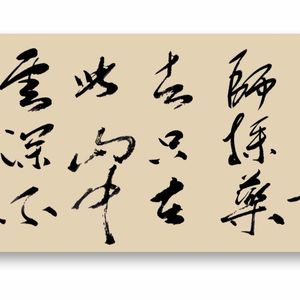 師採藥
去只在
此山中
雲深不